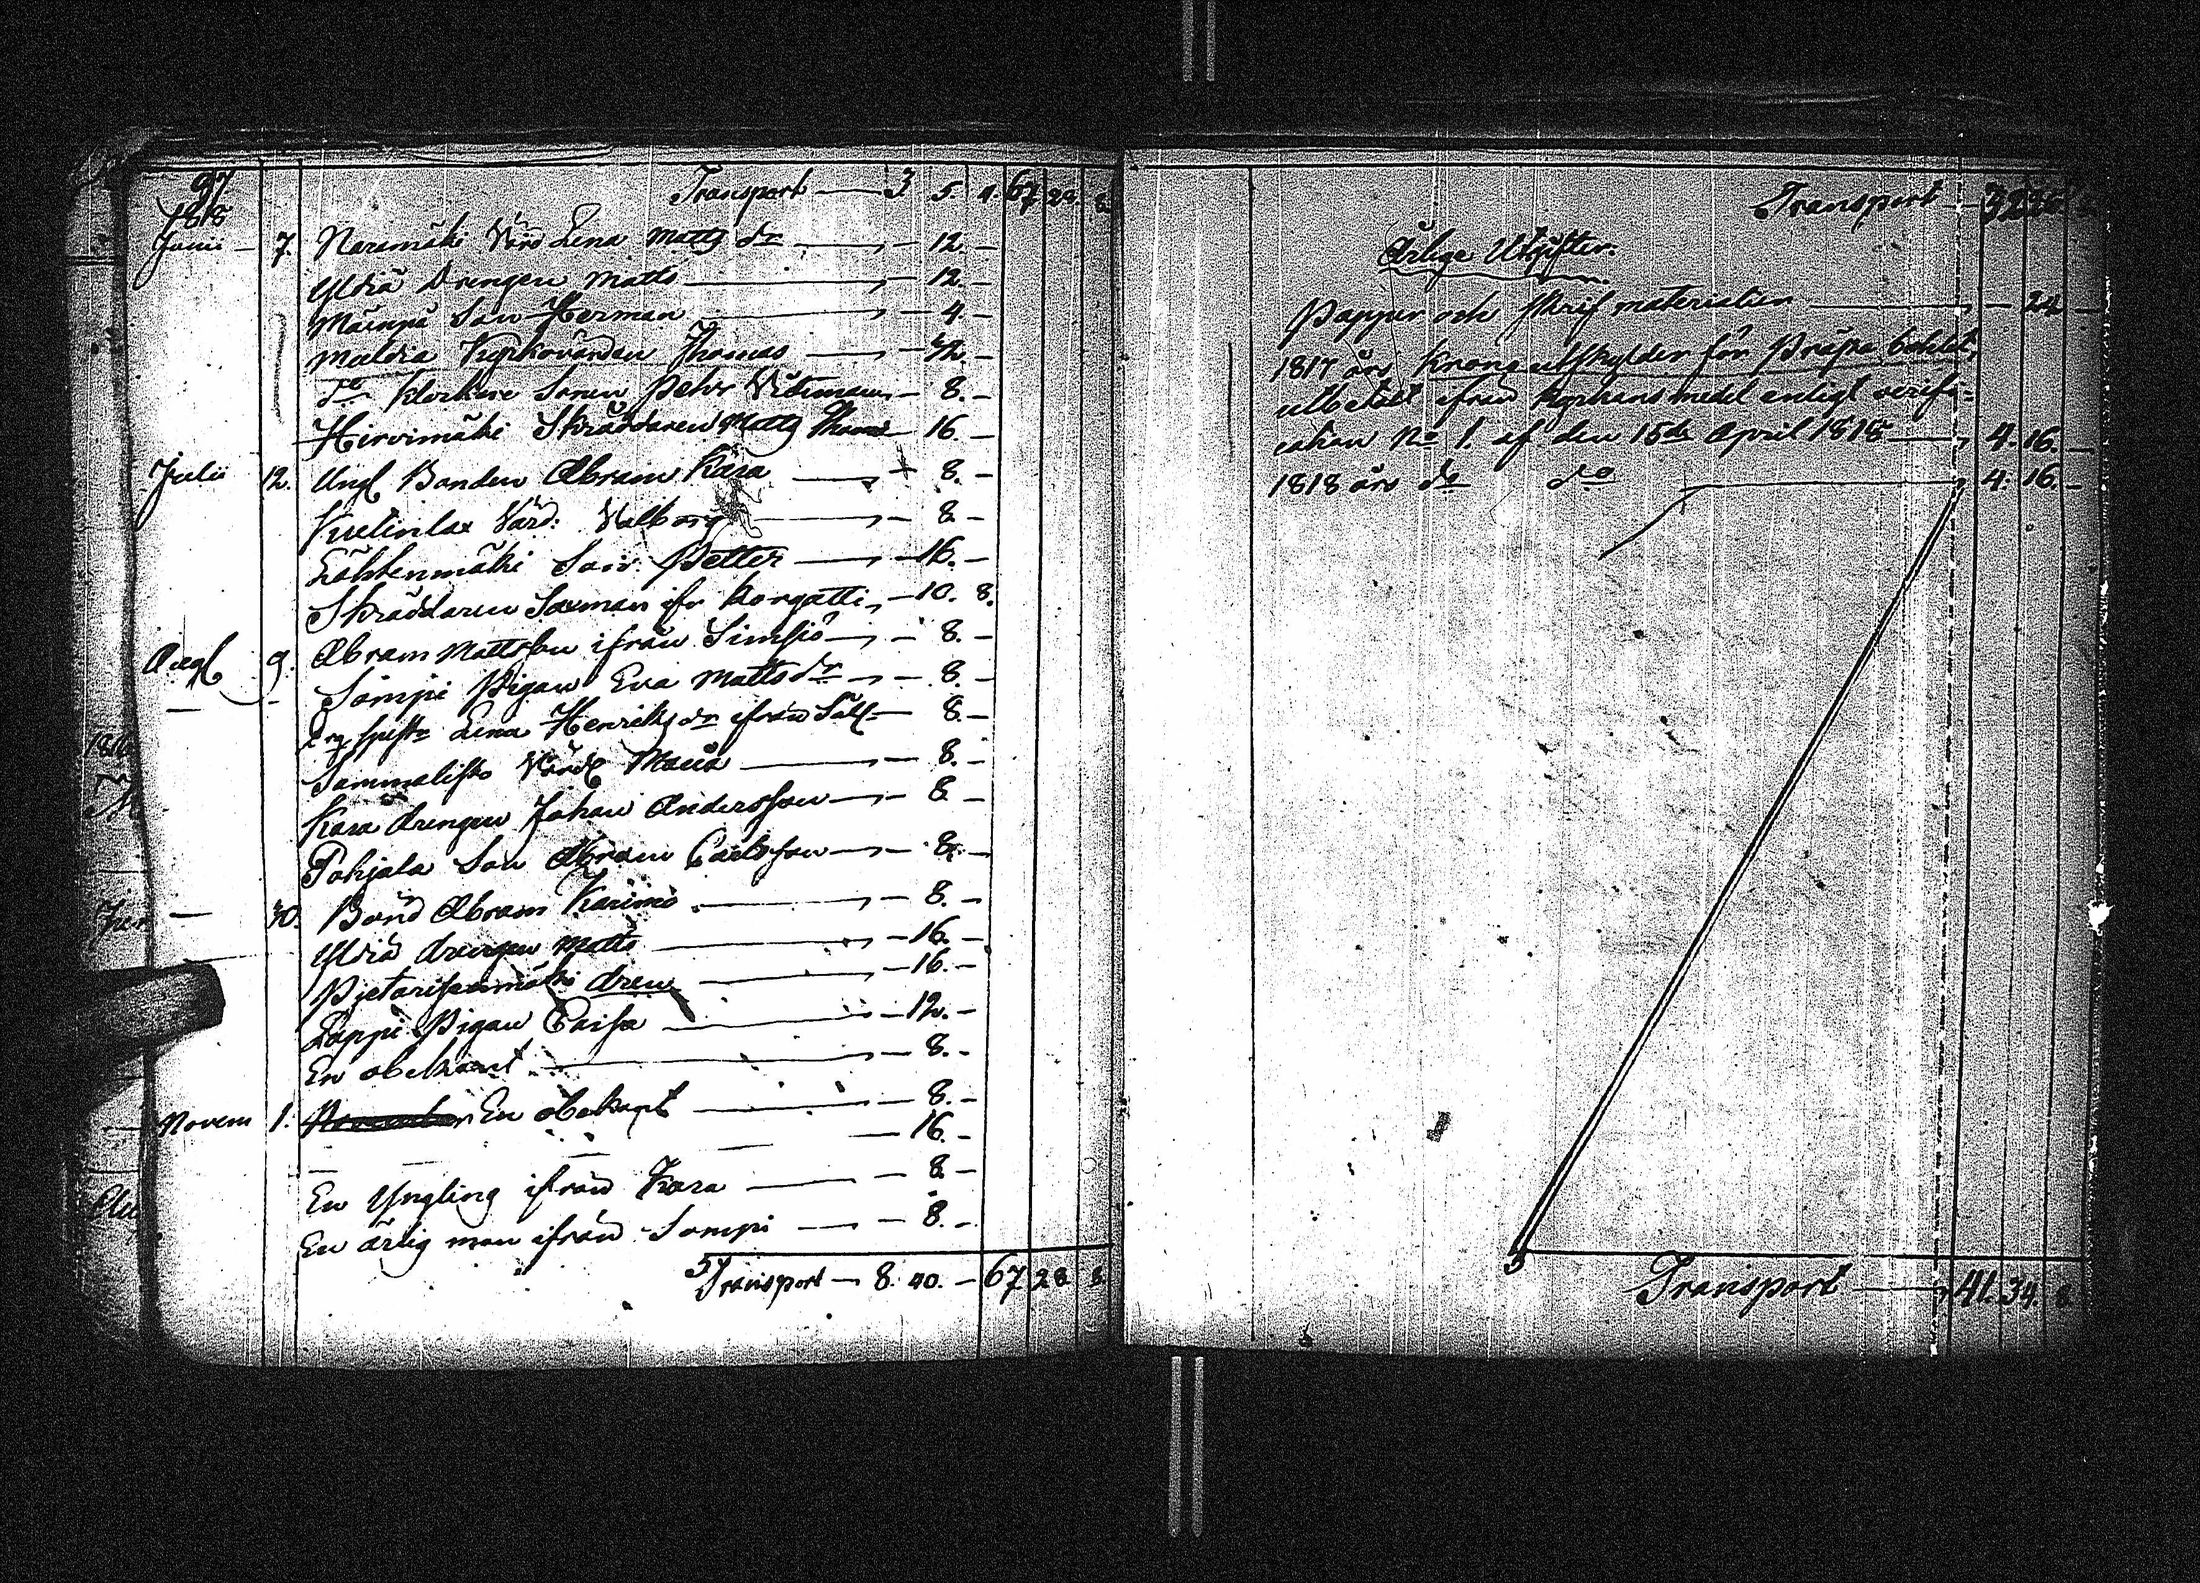 Transport — 3 5. 4. 67 28. 8
1818
Junii — 7. Naramäki Värd Lena Matts dr — 12. —
Yldiä Drengen Matts — 12. —
Mäenpä Son Herman — 4 —
Muldia Kyrkovärden Thomas — 32. —
do Klockare Sonen Petter — 8. —
Hirvimäki Skräddaren Matts — 16. —
Julii 12. Ungl Bonden Abram Kara — 8. —
Värd: Walborg — 8 —
Lähtenmäki Son Petter — 16. —
Skräddaren Saxman ifr Korgatti — 10. 8.
Augl 9. Abram Mattsson ifrån Simsiö — 8. —
Sompi Pigan Eva Matts dr — 8. —
Lena Henriks dr ifrån — 8. —
Sammalisto Värd Maria — 8. —
Kara drengen Johan Andersson — 8 —
Pohjala Son Abram Carlsson — 8. —
— 30. Bond Abram Karimo — 8. —
Yldiä drengen Matts — 16. —
Pjetarisenmäki dren — 16. —
Lappi Pigan Caisa — 12. —
En obekant — 8. —
Novem 1. En obekant — 8. —
— 16. —
En Yngling ifrån Kara — 8 —
En ärlig man ifrån Sompi — 8. —
Transport — 8. 40. — 67 28. 8
Transport
Årlige Utgifter.
Papper och Skrif materialier — 24 —
1817 års Krono utskylder för Präpä bohlet,
utbetalt ifrån Kyrkans medel enligt verifi-
cation No 1. af den 15de April 1818 — 4. 16. —
1818 års do do — 4. 16. —
Transport — 41. 34. 8